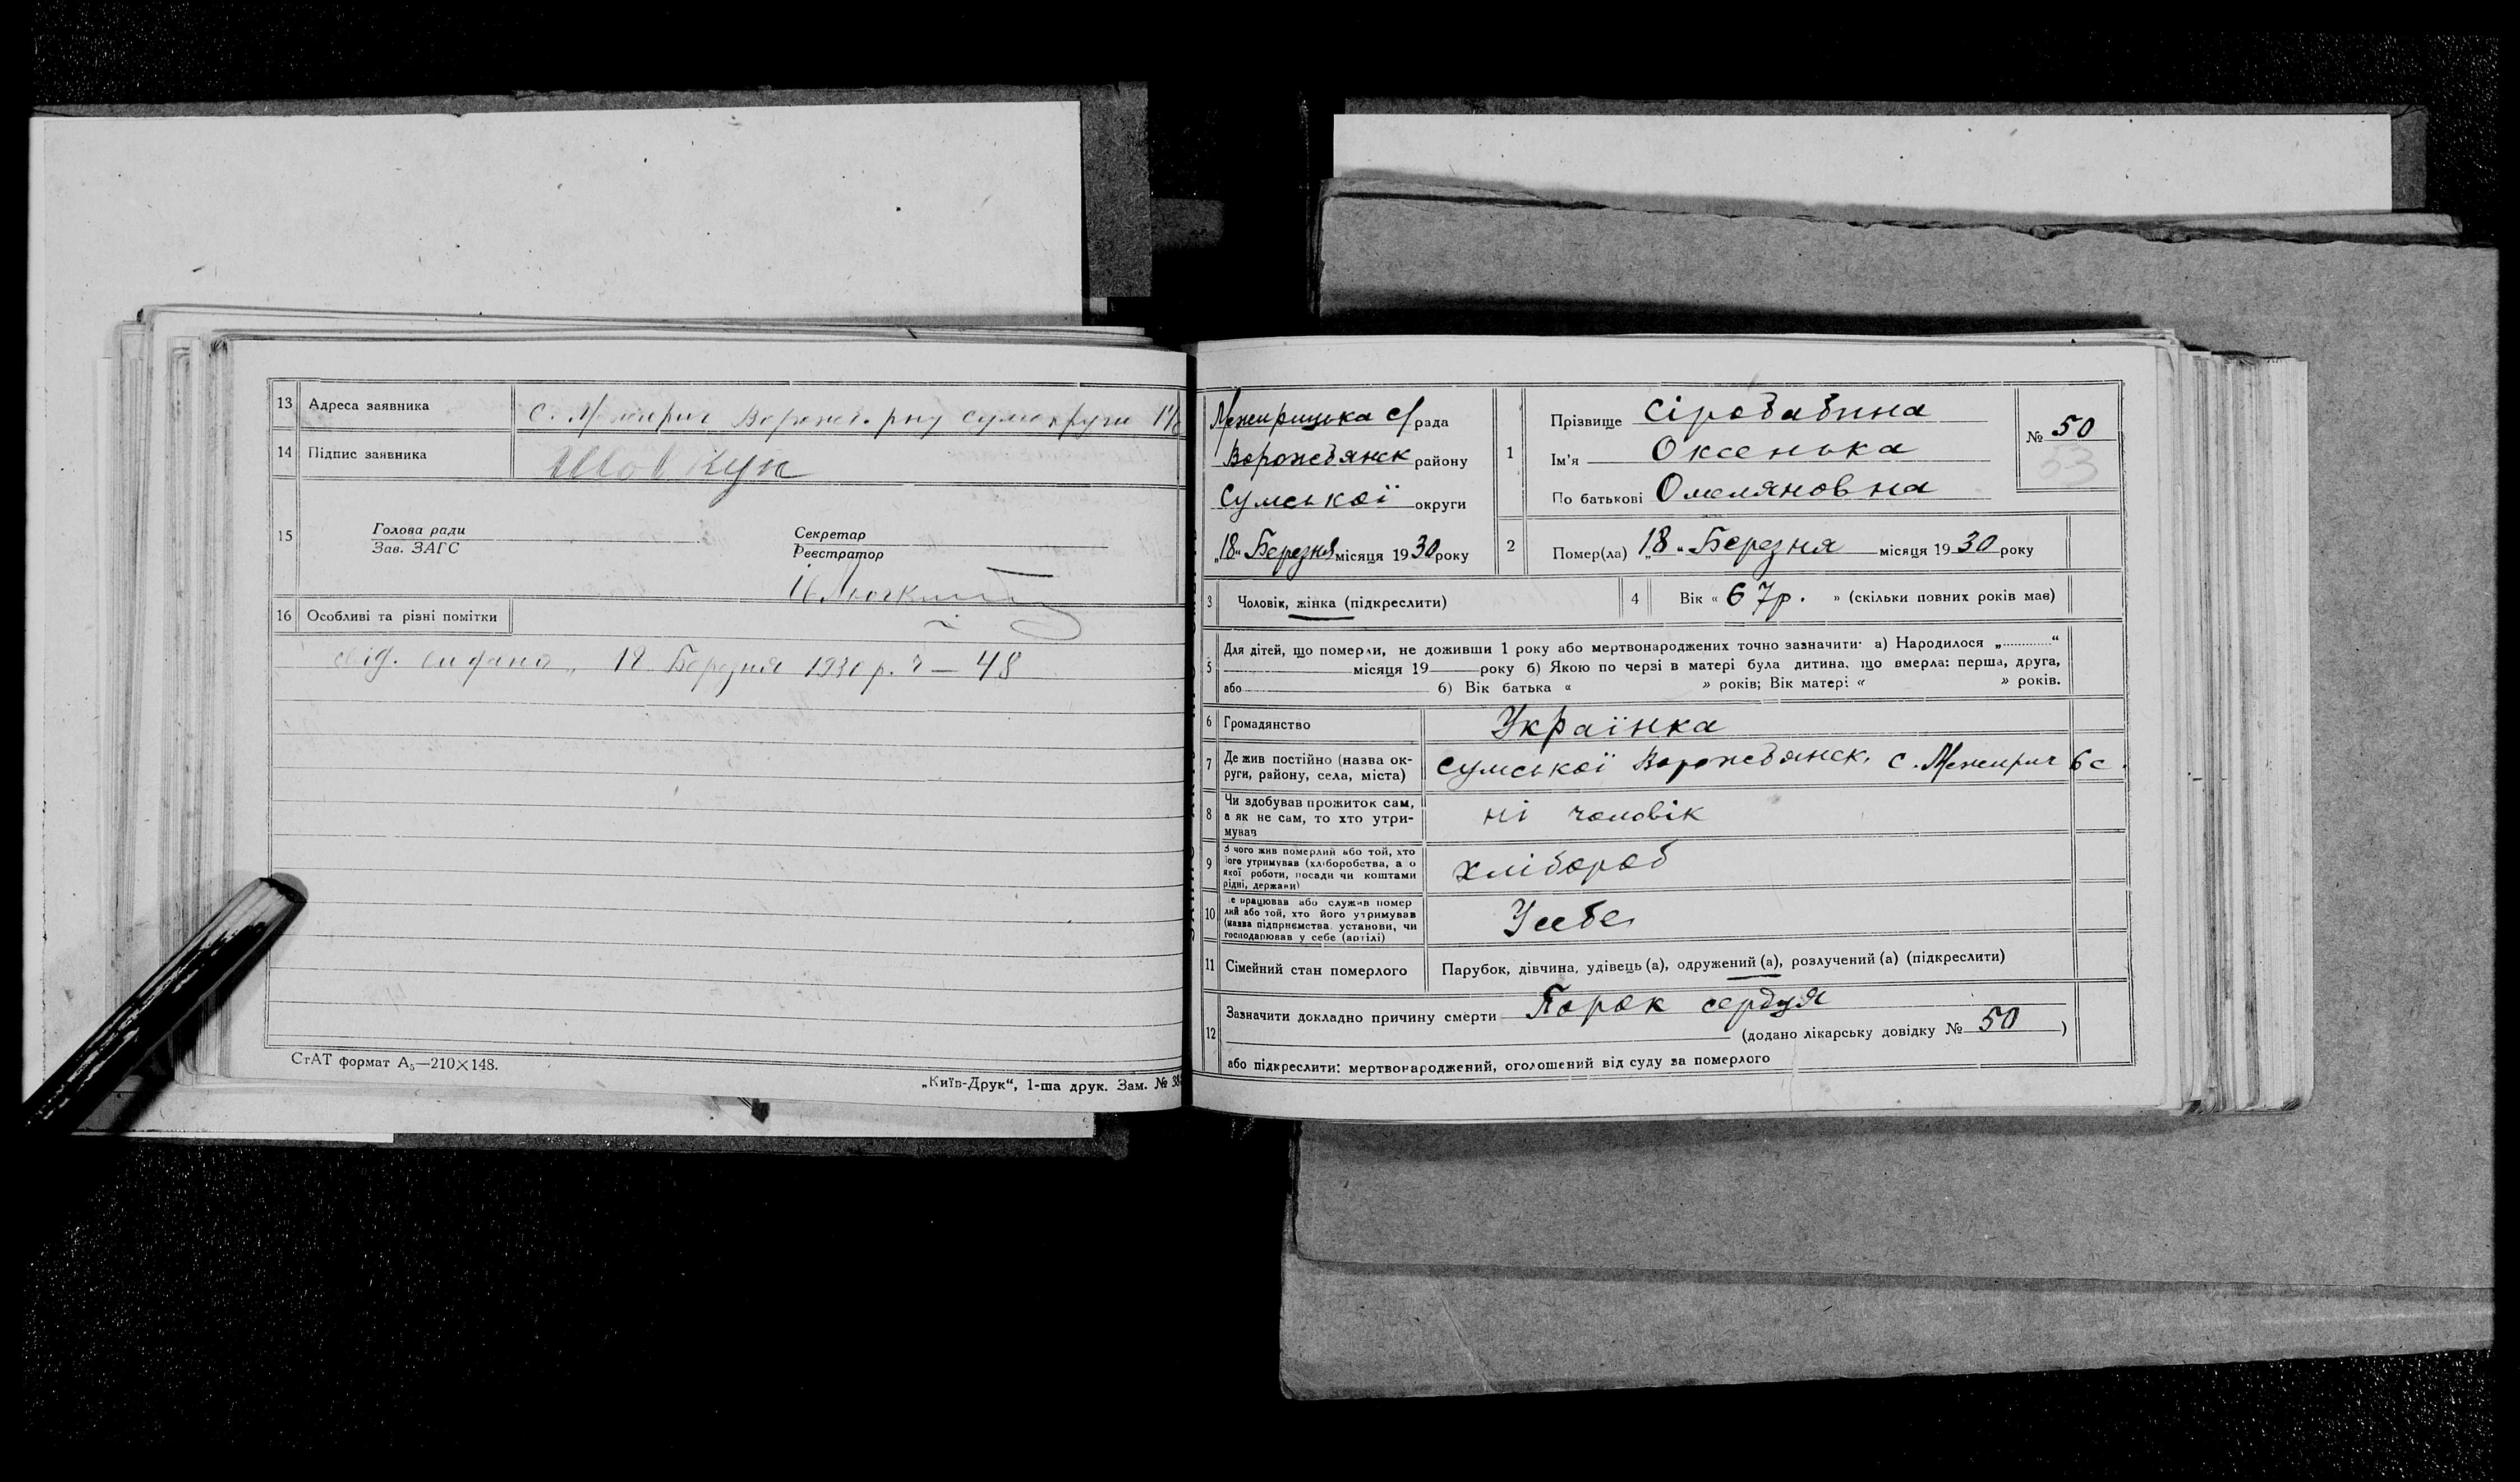 13 Адреса заявника
14 Підпис заявника Шовкун
15 Голова ради Секретар
Зав. ЗАГС Реєстратор
16 Особливі та різні помітки
свід. видано 18 Березня 1930 р. ч — 48
СтАТ формат А₅—210×148.
„Київ-Друк“, 1-ша друк. Зам. №
Межирицька с/рада
Ворожбянск району
Сумської округи
„18“ Березня місяця 1930 року
1 Прізвище Сіробабина
Ім'я Оксенька
По батькові Омеляновна
№ 50
53
2 Помер(ла) „18“ Березня місяця 1930 року
3 Чоловік, жінка (підкреслити)
4 Вік « 67р. » (скільки повних років мав)
5 Для дітей, що померли, не доживши 1 року або мертвонароджених точно зазначити: а) Народилося „ “
місяця 19 року б) Якою по черзі в матері була дитина, що вмерла: перша, друга,
або б) Вік батька « » років; Вік матері « » років.
6 Громадянство Українка
7 Де жив постійно (назва ок-
руги, району, села, міста) Сумської Ворожбянск. с. Межирич 6 с.
8 Чи здобував прожиток сам,
а як не сам, то хто утри-
мував ні чоловік
9 З чого жив померлий або той, хто
його утримував (хліборобства, а о
якої роботи, посади чи коштами
рідні, держави) хлібороб
10 е працював або служив помер
лий або той, хто його утримував
(назва підприємства, установи, чи
господарював у себе (артілі) Усебе
11 Сімейний стан померлого Парубок, дівчина, удівець (а), одружений (а), розлучений (а) (підкреслити)
12 Зазначити докладно причину смерти Порок сердця
(додано лікарську довідку № 50 )
або підкреслити: мертвонароджений, оголошений від суду за померлого